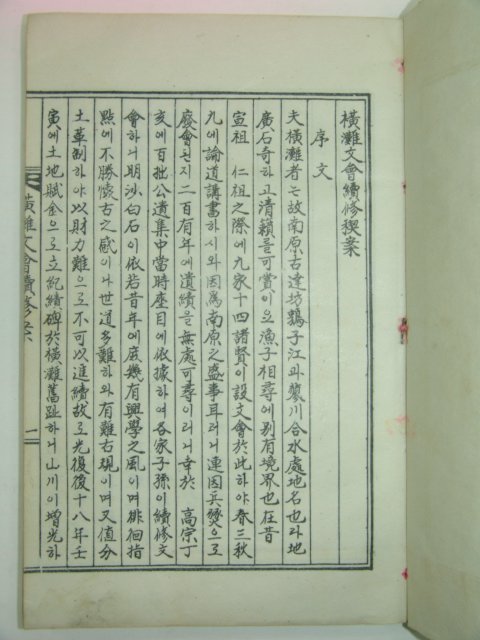 橫灘文會續修稧案
序文
夫橫灘者는故南原古達坊鶉子江과蓼川合水處地名也라地
廣石奇하고淸籟를可賞이요漁子相尋에別有境界也在昔
宣祖 仁祖之際에九家十四諸賢이設文會於此하야春三秋
九에論道講書하시와因爲南原之盛事耳러니連因兵燹으로
廢會된지二百有年에遺蹟을無處可尋이러니幸於 高宗丁
亥에百拙公遺集中當時座目에依據하여各家子孫이續修文
會하니期沙白石이依若昔年에庶幾有興學之風이며徘徊指
點에不勝懷古之感이나世道多難하와有難右現이며又値分
土革制하야以財力難으로不可以進續故로光復後十八年壬
寅에土地賦金으로立紀績碑於橫灘舊趾하니山川이增光하
橫灘文會續修案
一